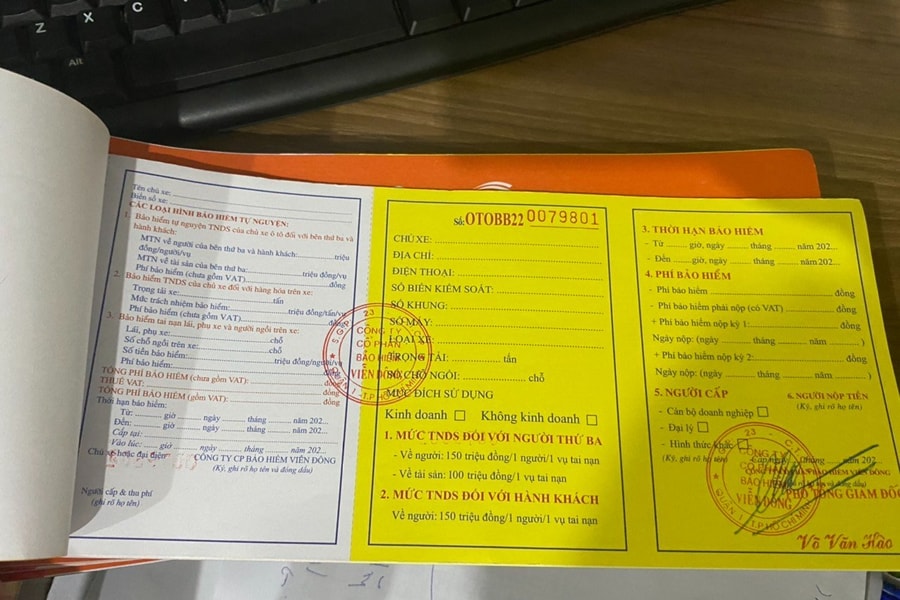 Z
X
C
Alt
Tên chủ xe:
Biển số xe:
CÁC LOẠI HÌNH BẢO HIỂM TỰ NGUYỆN:
1. Bảo hiểm tự nguyện TNDS của chủ xe ô tô đối với bên thứ ba và
hành khách:
MTN về người của bên thứ ba và hành khách:..................triệu
đồng/người/vụ
MTN về tài sản của bên thứ ba:..................triệu đồng/vụ
Phí bảo hiểm (chưa gồm VAT)..................đồng
2. Bảo hiểm TNDS của chủ xe đối với hàng hóa trên xe:
Trọng tải xe:..................tấn
Mức trách nhiệm bảo hiểm:..................triệu đồng/tấn/vụ
Phí bảo hiểm (chưa gồm VAT):..................đồng
3. Bảo hiểm tai nạn lái, phụ xe và người ngồi trên xe:
Lái, phụ xe:..................chỗ
Số chỗ ngồi trên xe:..................chỗ
Số tiền bảo hiểm:..................triệu đồng/người/vụ
Phí bảo hiểm:..................đồng
TỔNG PHÍ BẢO HIỂM (chưa gồm VAT):..................đồng
THUẾ VAT:..................đồng
TỔNG PHÍ BẢO HIỂM (gồm VAT):..................đồng
Thời hạn bảo hiểm:
Từ: ........ giờ ........ ngày ........ tháng ........ năm 202...
Đến: ........ giờ ........ ngày ........ tháng ........ năm 202...
Cấp tại:
Vào lúc: ........ giờ ........ ngày ........ tháng ........ năm 202...
Chủ xe hoặc đại diện
CÔNG TY CP BẢO HIỂM VIỄN ĐÔNG
(Ký, ghi rõ họ tên và đóng dấu)
Người cấp & thu phí
(ghi rõ họ tên)
CÔNG TY
CỔ PHẦN
BẢO HIỂM
VIỄN ĐÔNG
QUẬN 1 - T.P HỒ CHÍ MINH
Số: OTOBB22 0079801
CHỦ XE:
ĐỊA CHỈ:
ĐIỆN THOẠI:
SỐ BIỂN KIỂM SOÁT:
SỐ KHUNG:
SỐ MÁY:
LOẠI XE:
TRỌNG TẢI: .................. tấn
SỐ CHỖ NGỒI: .................. chỗ
MỤC ĐÍCH SỬ DỤNG
Kinh doanh □ Không kinh doanh □
1. MỨC TNDS ĐỐI VỚI NGƯỜI THỨ BA
- Về người: 150 triệu đồng/1 người/1 vụ tai nạn
- Về tài sản: 100 triệu đồng/1 vụ tai nạn
2. MỨC TNDS ĐỐI VỚI HÀNH KHÁCH
Về người: 150 triệu đồng/1 người/vụ tai nạn
3. THỜI HẠN BẢO HIỂM
- Từ ........ giờ, ngày ........ tháng ........ năm 202...
- Đến ........ giờ, ngày ........ tháng ........ năm 202...
4. PHÍ BẢO HIỂM
- Phí bảo hiểm .................. đồng
- Phí bảo hiểm phải nộp (có VAT) .................. đồng
+ Phí bảo hiểm nộp kỳ 1: .................. đồng
Ngày nộp: (ngày ........ tháng ........ năm ........ )
+ Phí bảo hiểm nộp kỳ 2: .................. đồng
Ngày nộp: (ngày ........ tháng ........ năm ........ )
5. NGƯỜI CẤP
6. NGƯỜI NỘP TIỀN
(Ký, ghi rõ họ tên)
- Cán bộ doanh nghiệp □
- Đại lý □
- Hình thức khác □
(Ký, ghi rõ họ tên)
CÔNG TY
CỔ PHẦN
BẢO HIỂM
VIỄN ĐÔNG
QUẬN 1 - T.P HỒ CHÍ MINH
PHÓ TỔNG GIÁM ĐỐC
Võ Văn Hào